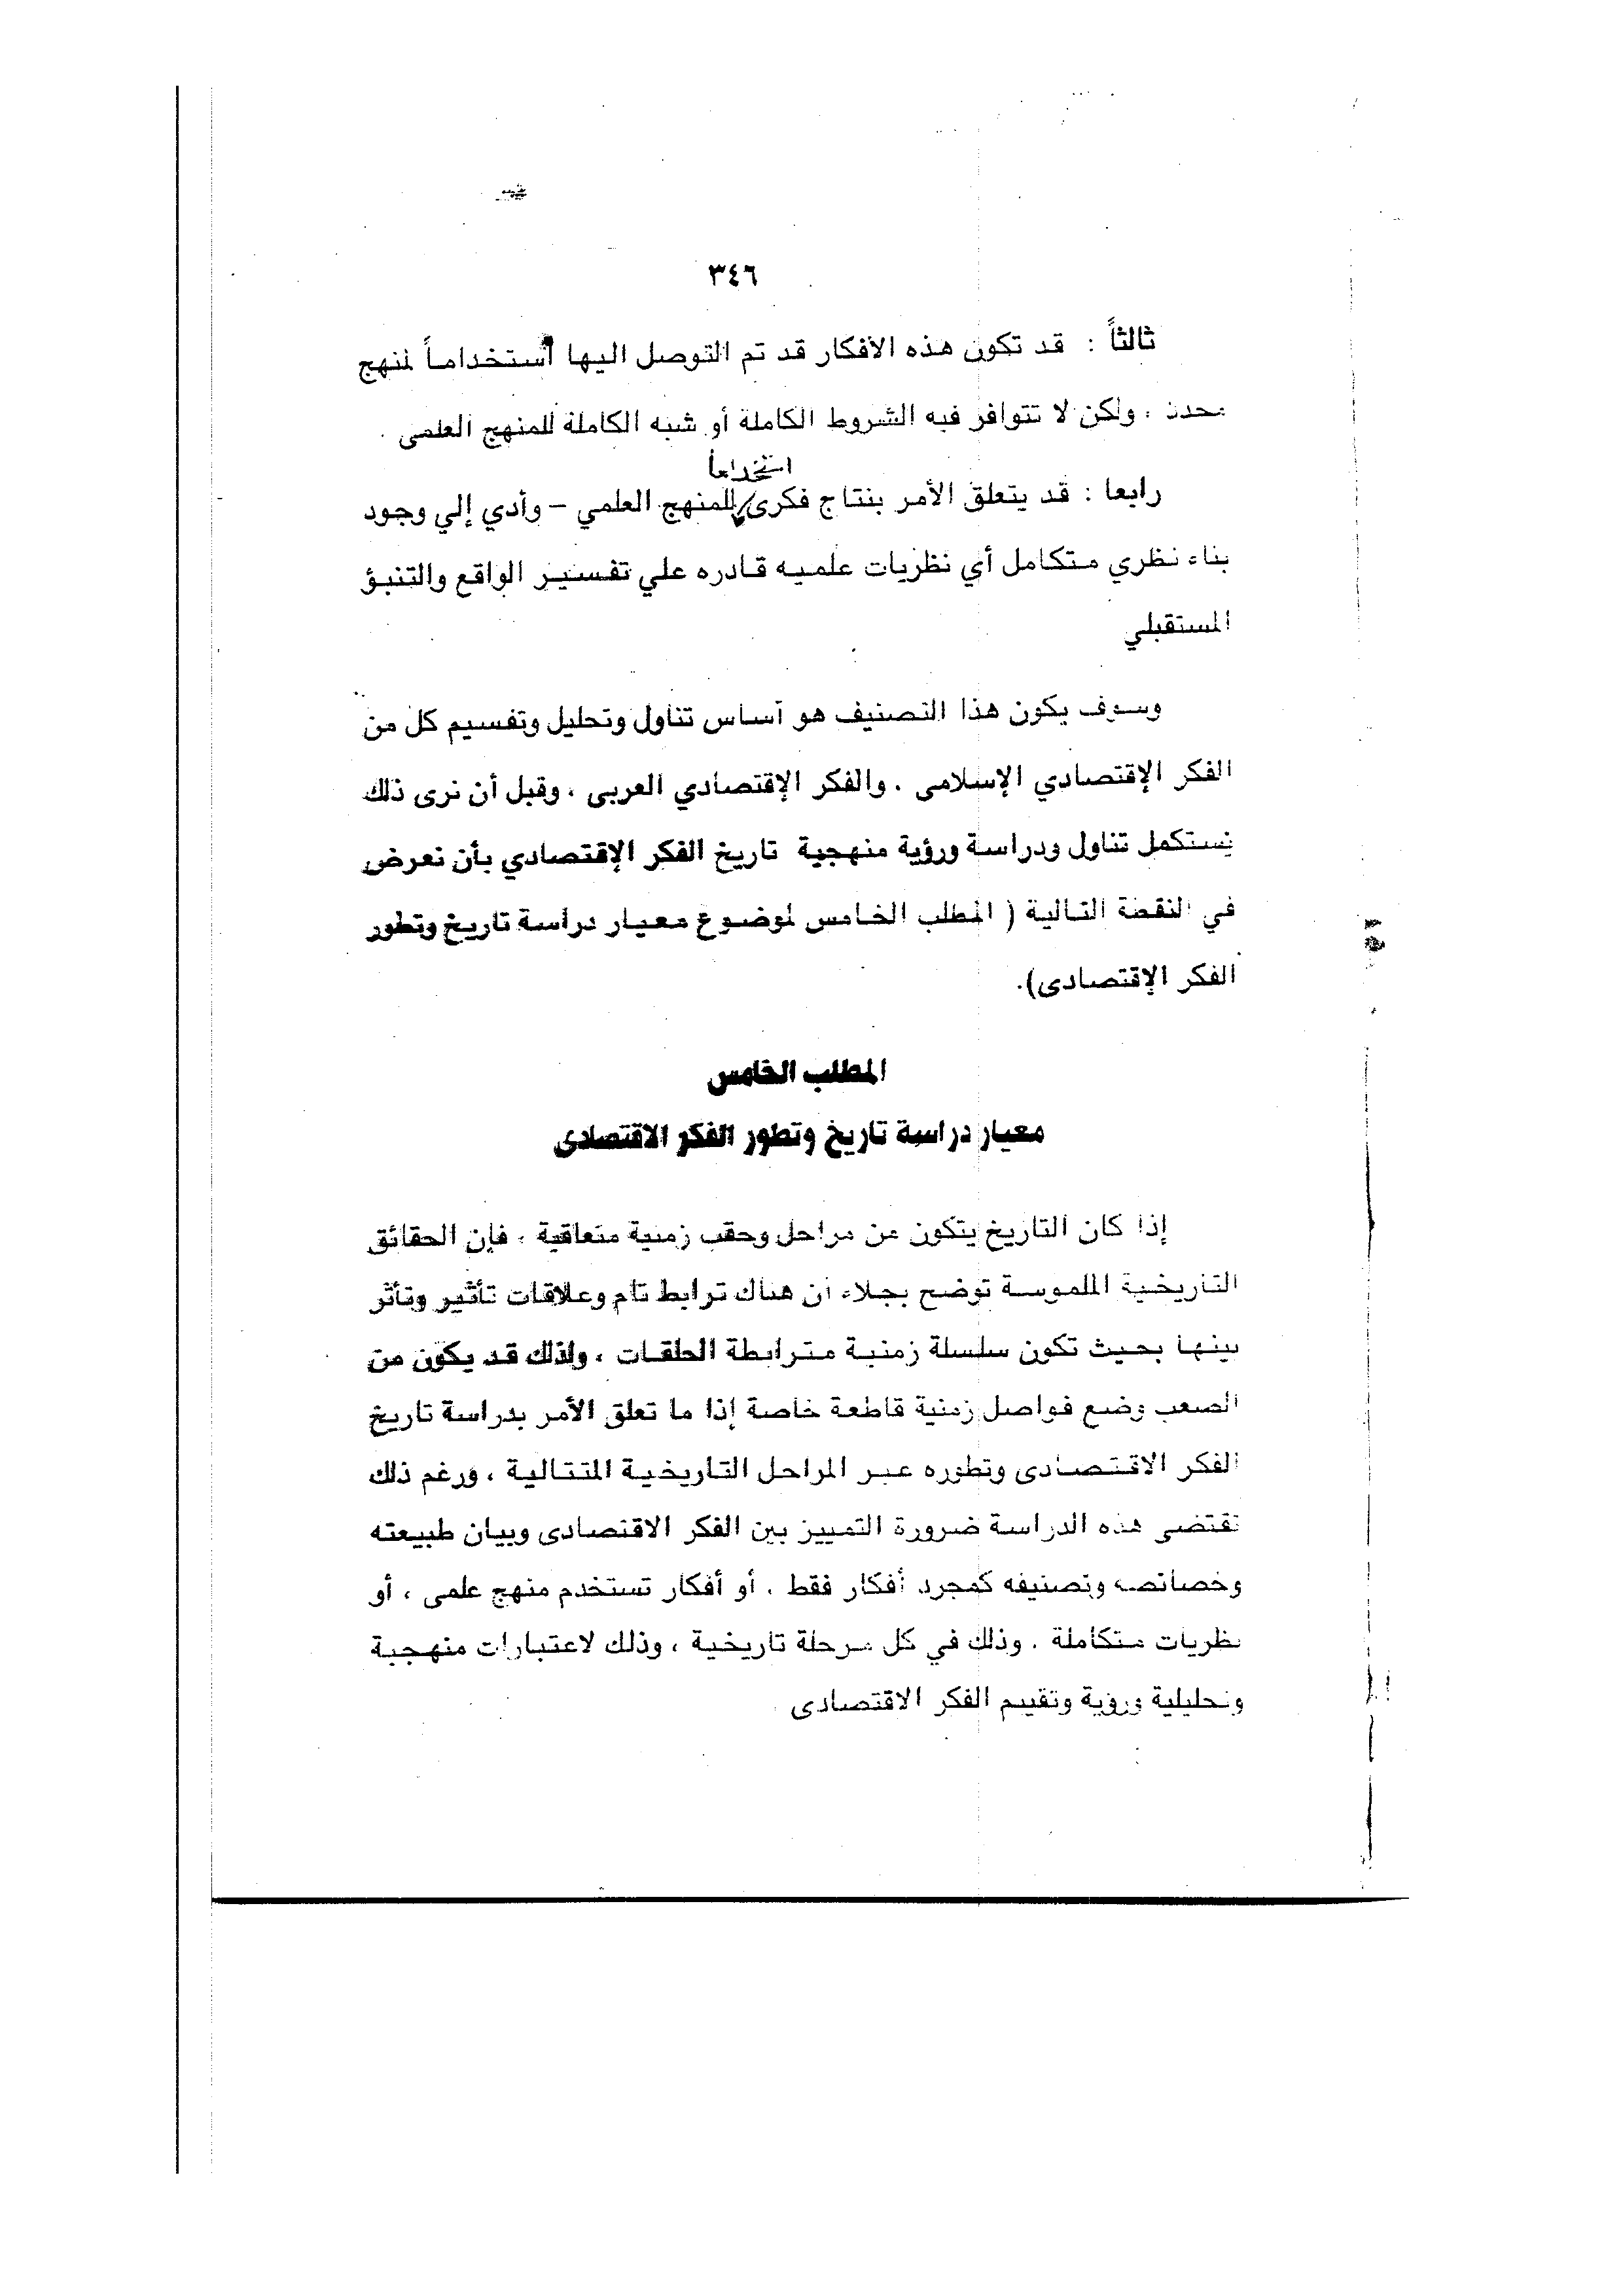 ٣٤٦
ثالثاً : قد تكون هذه الأفكار قد تم التوصل اليها أستخداماً لمنهج
محدد ، ولكن لا تتوافر فيه الشروط الكاملة أو شبه الكاملة للمنهج العلمى .
استخداماً
رابعا : قد يتعلق الأمر بنتاج فكرى للمنهج العلمي – وأدي إلي وجود
بناء نظري متكامل أي نظريات علميه قادره علي تفسير الواقع والتنبؤ
المستقبلي
وسوف يكون هذا التصنيف هو أساس تناول وتحليل وتفسيم كل من
الفكر الإقتصادي الإسلامى . والفكر الإقتصادي العربى ، وقبل أن نرى ذلك
نستكمل تناول ودراسة ورؤية منهجية تاريخ الفكر الإقتصادي بأن نعرض
في النقطة التالية ( المطلب الخامس لموضوع معيار دراسة تاريخ وتطور
الفكر الإقتصادى).
المطلب الخامس
معيار دراسة تاريخ وتطور الفكر الاقتصادى
إذا كان التاريخ يتكون من مراحل وحقب زمنية متعاقبة ، فإن الحقائق
التاريخية الملموسة توضح بجلاء أن هناك ترابط تام وعلاقات تأثير وتأثر
بينها بحيث تكون سلسلة زمنية مترابطة الحلقات ، ولذلك قد يكون من
الصعب وضع فواصل زمنية قاطعة خاصة إذا ما تعلق الأمر بدراسة تاريخ
الفكر الاقتصادى وتطوره عبر المراحل التاريخية المتتالية ، ورغم ذلك
تقتضى هذه الدراسة ضرورة التمييز بين الفكر الاقتصادى وبيان طبيعته
وخصائصه وتصنيفه كمجرد أفكار فقط ، أو أفكار تستخدم منهج علمى ، أو
نظريات متكاملة . وذلك في كل مرحلة تاريخية ، وذلك لاعتبارات منهجية
وتحليلية ورؤية وتقييم الفكر الاقتصادى